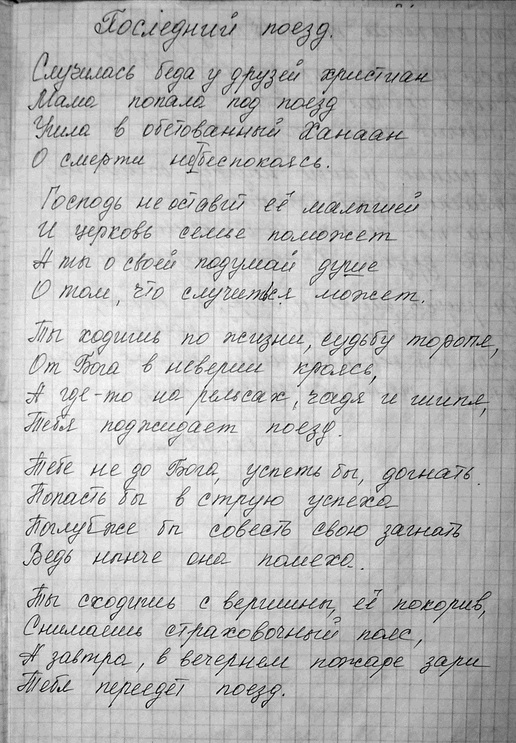 Последний поезд.
Случилась беда у друзей христиан
Мама попала под поезд
Ушла в обетованный Ханаан
О смерти не беспокоясь.
Господь не оставит её малышей
И церковь семье поможет
А ты о своей подумай душе
О том, что случиться может.
Ты ходишь по жизни, судьбу торопя,
От Бога в неверии кроясь,
А где-то на рельсах, чадя и шипя,
Тебя поджидает поезд.
Тебе не до Бога, успеть бы, догнать.
Попасть бы в струю успеха
Поглубже бы совесть свою загнать
Ведь нынче она помеха.
Ты сходишь с вершины, её покорив,
Снимаешь страховочный пояс,
А завтра, в вечернем пожаре зари
Тебя переедет поезд.